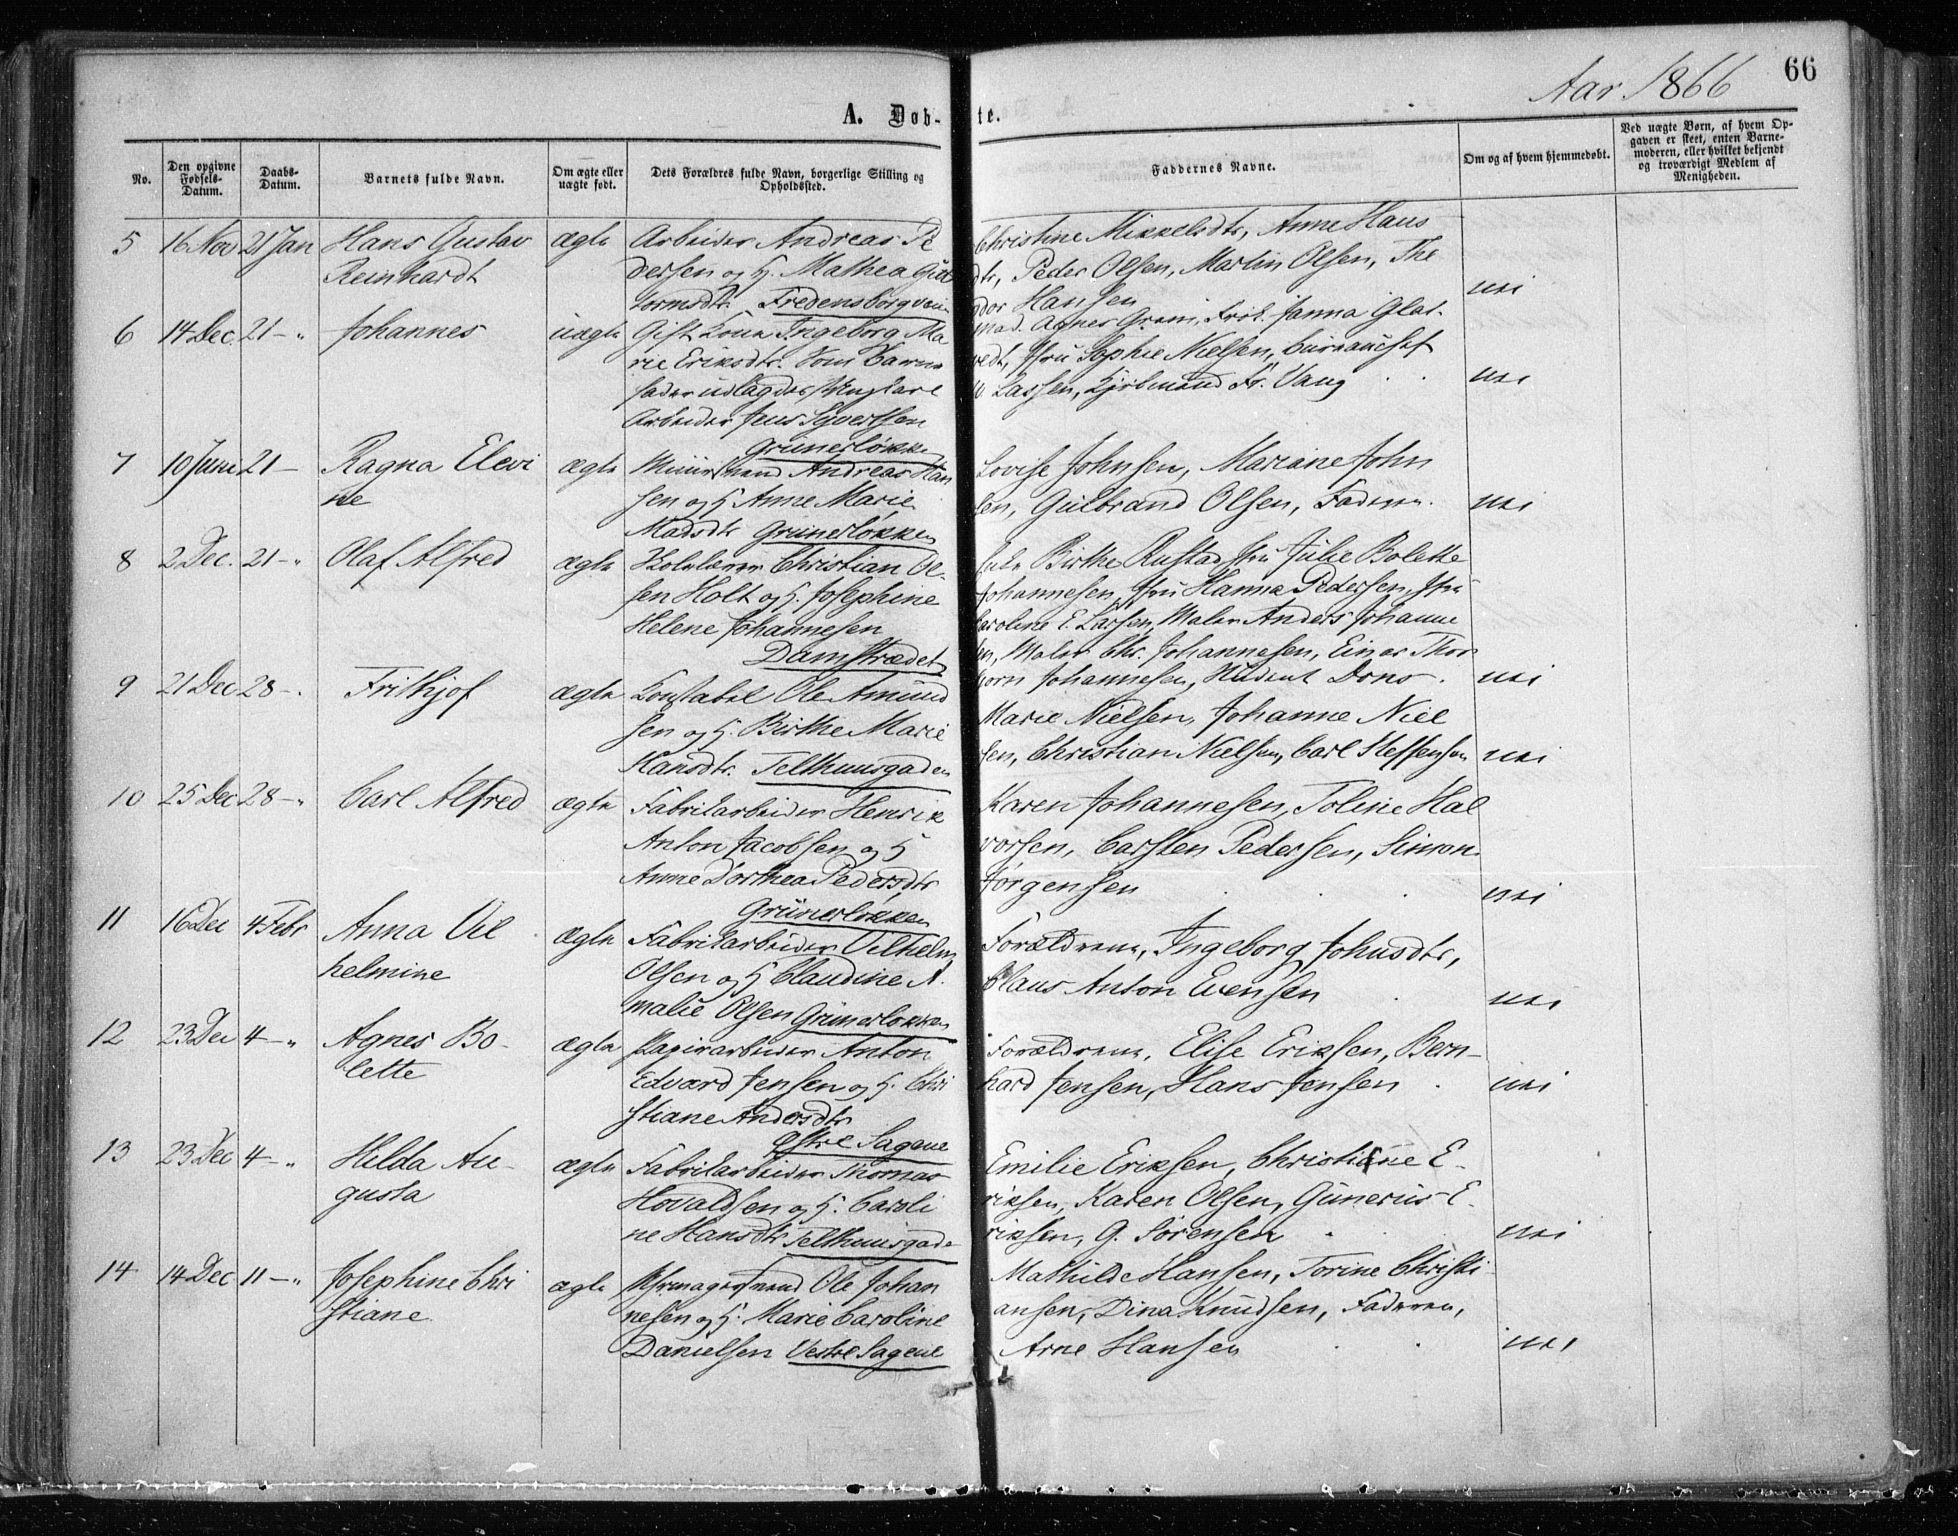 66
Aar 1866
A. Døb-te.
No.
Den opgivne Fødsels-Datum.
Daabs-Datum.
Barnets fulde Navn.
Om ægte eller uægte født.
Dets Forældres fulde Navn, borgerlige Stilling og Opholdssted.
Faddernes Navne.
Om og af hvem hjemmedøbt.
Ved uægte Børn, af hvem Opgaven er skeet, enten Barnemoderen, eller hvilket bekjendt og troværdigt Medlem af Menigheden.
5 16 Nov 21 Jan Hans Gustav ægte Arbeider Andreas Pe
Reinhardt dersen og H. Mathea Gut
tormsdtr. Fredensborgvein
Christine Mikkelsdtr, Anne Hans
dtr, Peder Olsen, Martin Olsen, The
odor Hansen nei
6 14 Dec. 21 - " Johannes uægte Gift Kone Ingeborg Ma
rie Eriksdtr. Som Barne
fader udlagdes
Arbeider Jens Syvertsen
Grünerløkken
Mad. Agnes Gram, Frøk. Janna Glas
vedt, Jfru Sophie Nielsen, Bureauchef
Lassen, Kjøbmand Fr. Vang nei
7 10 Juni 21 - Ragna Elevi ægte Muursvend Andreas Han
ne sen og H. Anne Marie
Madsdtr Grünerløkken
Lovise Johnsen, Mariane John
sen, Gulbrand Olsen, Faderen. nei
8 2 Dec. 21 - " Olaf Alfred ægte Skolelærer Christian Ol-
sen Holt og H. Josephine
Helene Johannesen
Damstrædet
Birthe Rustad, Jfru Julie Bolette
Johannesen, Jfru Hanna Pedersen, Jfru
Caroline E. Larsen, Maler Anders Johanne
sen, Maler Chr. Johannesen, Einar Thor
bjørn Johannesen, Student Dons. nei
9 21 Dec 28 - . Frithjof ægte Konstabel Ole Amund
sen og H. Birthe Marie
Hansdtr. Telthuusgaden
Marie Nielsen, Johanne Niel
sen, Christian Nielsen, Carl Steffensen nei
10 25 Dec 28 - " Carl Alfred ægte Fabrikarbeider Henrik
Anton Jacobsen og H
Anne Dorthea Pedersdtr
Grünerløkken
Karen Johannesen, Toline Hal
vorsen, Carsten Pedersen, Simon
Jørgensen nei
11 16 Dec 4 Febr Anna Vil ægte Fabrikarbeider Vilhelm
helmine Olsen og H Claudine A.
malie Olsen Grünerløkken
Forældrene, Ingeborg Johnsdtr,
Claus Anton Evensen nei
12 23 Dec 4 - " Agnes Bo- ægte Papirarbeider Anton
lette Edvard Jensen og H. Chri
stiane Andersdtr
Østre Sagene
Forældrene, Elise Eriksen, Bern-
hard Jensen, Hans Jensen nei
13 23 Dec 4 - " Hilda Au- ægte Fabrikarbeider Thomas
gusta Hovaldsen og H. Caroli
ne Hansdtr Telthuusgade
Emilie Eriksen, Christiane E-
riksen, Karen Olsen, Gunerius E-
riksen, G. Sørensen nei
14 14 Dec 11 - " Josephine Chri ægte Skomagersvend Ole Johan
stiane nesen og H. Marie Caroline
Danielsen Vestre Sagene
Mathilde Hansen, Torine Christi
ansen, Dina Knudsen, Faderen,
Arne Hansen nei